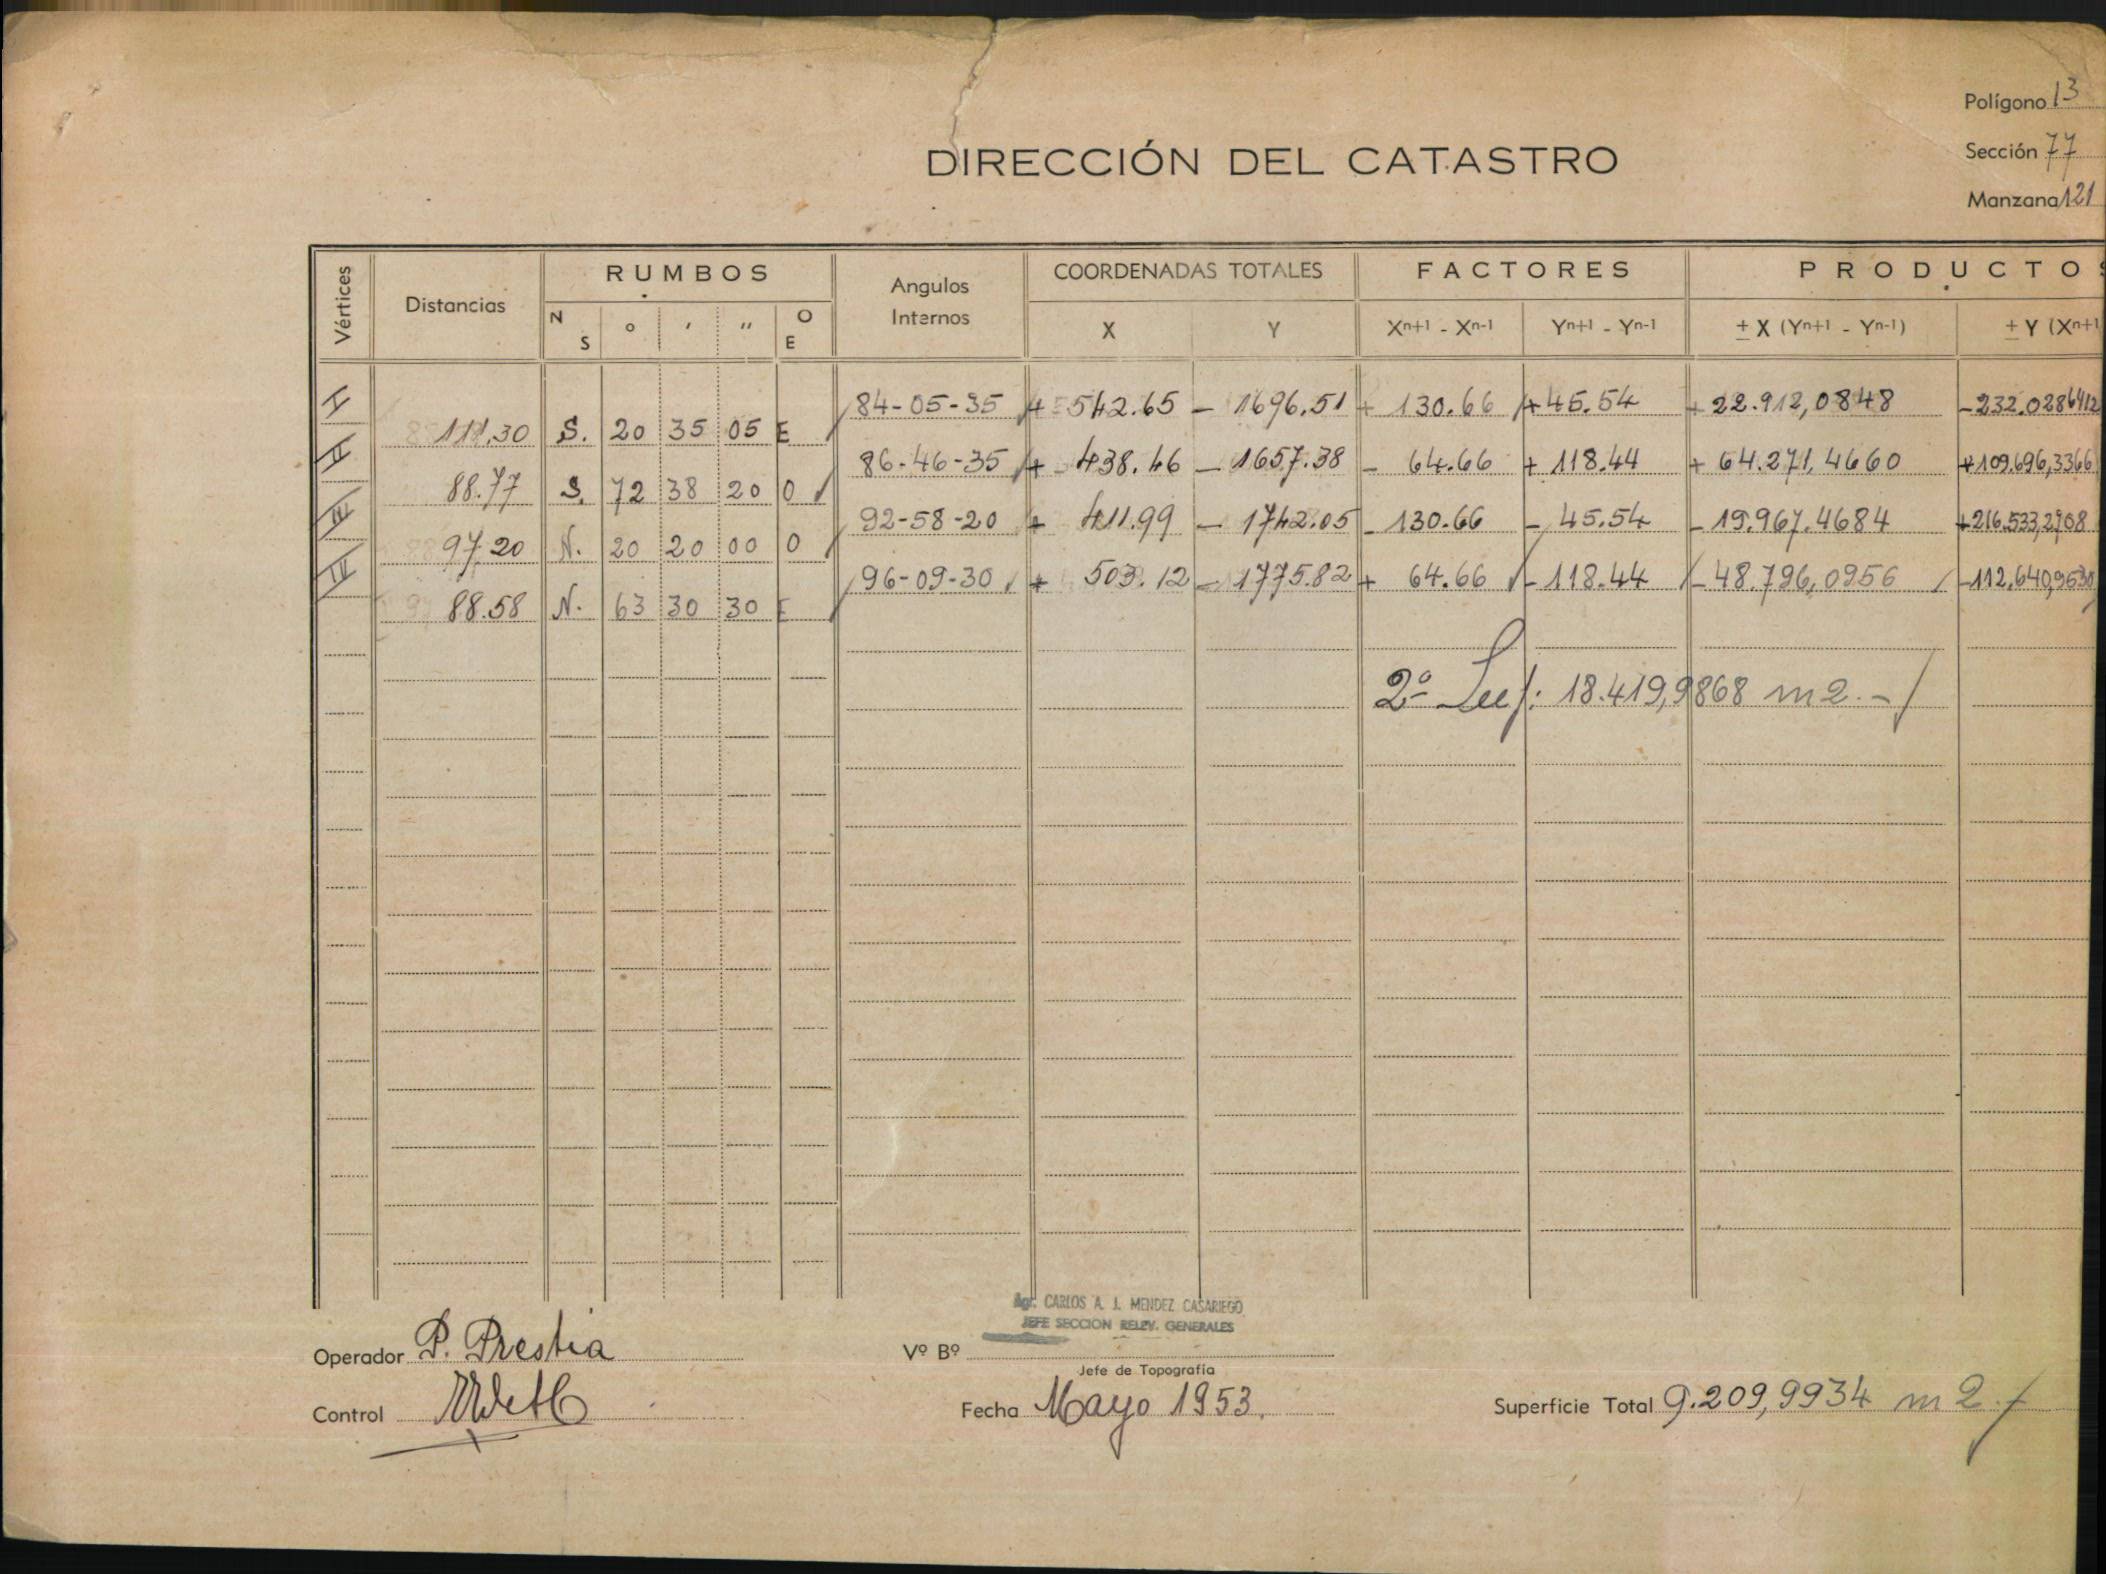 Polígono 13
DIRECCIÓN DEL CATASTRO
Sección 77
Manzana 121
Vértices Distancias RUMBOS Angulos Internos COORDENADAS TOTALES FACTORES PRODUCTOS
N S ° ′ ″ O E X Y Xn+1 - Xn-1 Yn+1 - Yn-1 ± X (Yn+1 - Yn-1) ± Y (Xn+1
I 84-05-35 + 542.65 - 1696.51 + 130.66 + 45.54 + 22.912,0848 - 232.0286412
111.30 S. 20 35 05 E
II 86-46-35 + 438.46 - 1657.38 - 64.66 + 118.44 + 64.271,4660 + 109.696,3366
88.77 S. 72 38 20 O
III 92-58-20 + 411.99 - 1742.05 - 130.66 - 45.54 - 19.967.4684 + 216.553,2708
97.20 N. 20 20 00 O
IV 96-09-30 + 503.12 - 1775.82 + 64.66 - 118.44 - 48.796,0956 - 112.640,9530
88.58 N. 63 30 30 E
2º Sup: 18.419,9868 m2.-
Agr. CARLOS A. J. MENDEZ CASARIEGO
JEFE SECCION RELEV. GENERALES
Operador P. Prestia Vº Bº
Jefe de Topografía
Control Fecha Mayo 1953. Superficie Total 9.209,9934 m2.